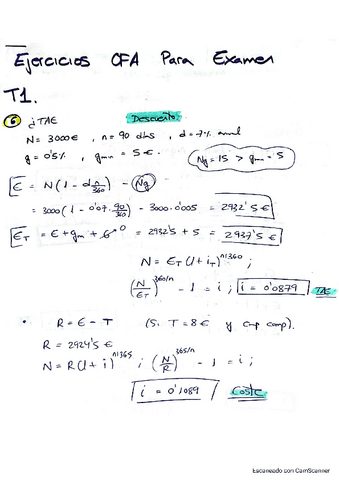 Ejercicios CFA Para Examen
T1.
6 ¿TAE Descuento
N = 3000€ , n = 90 días , d = 7% anual
g = 0'5% , gmin = 5€. Ng = 15 > gm = 5
E = N(1 - d n/360) - Ng
= 3000(1 - 0'07 · 90/360) - 3000·0'005 = 2932'5 €
ET = E + gm + G→0 = 2932'5 + 5 = 2937'5 €
N = ET(1 + iT)^n/360 ;
(N/ET)^360/n - 1 = i ; i = 0'0879 TAE
• R = E - T (Si T = 8€ y comp).
R = 2924'5 €
N = R(1 + i)^n/365 ; (N/R)^365/n - 1 = i ;
i = 0'1089 Coste
Escaneado con CamScanner